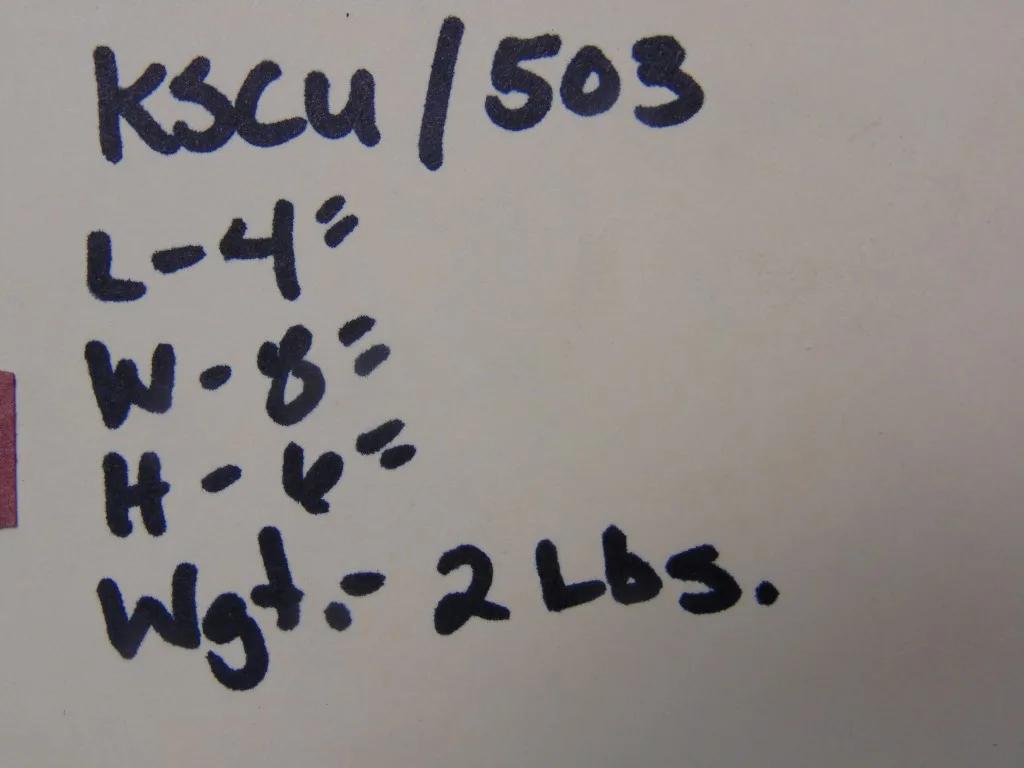 KSCU/503
L-4"
W-8"
H-6"
Wgt.- 2 Lbs.